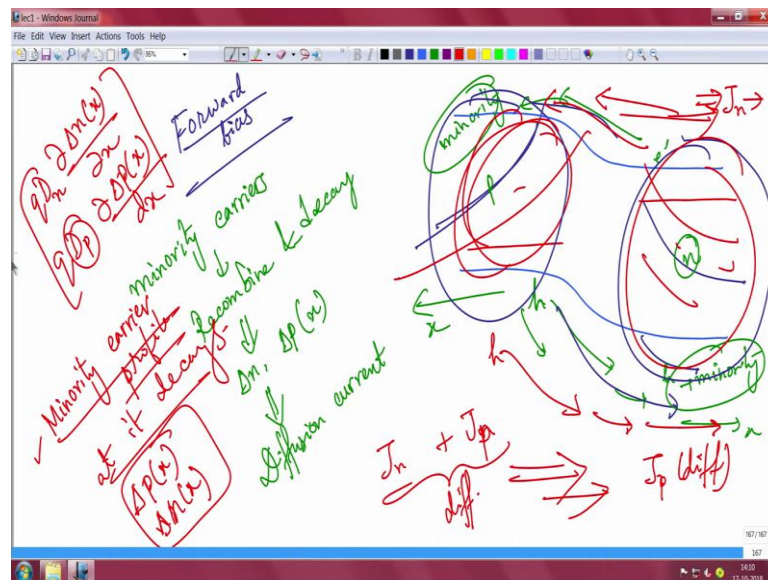 lec1 - Windows Journal
File Edit View Insert Actions Tools Help
96%
qDn ∂Δn(x)
∂x
qDp ∂Δp(x)
dx
Forward
bias
minority carriers
↓
Recombine & decay
⇓
Δn, Δp(x)
⇓
Diffusion current
✓ Minority carrier
profile
at it decays-
Δp(x)
Δn(x)
minority
Jn →
e-
p
n
x
h
h
minority
x
Jn + Jp
diff.
Jp (diff)
167/167
167
14:10
17-10-2018